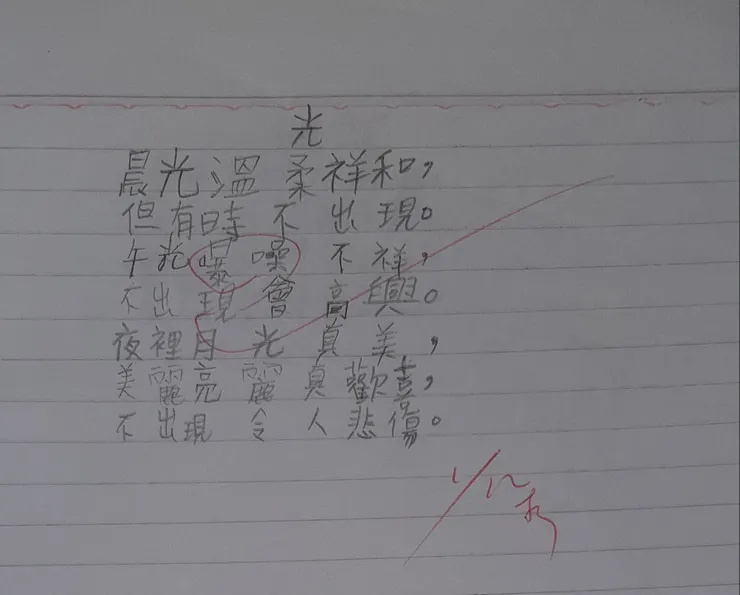 光
晨光溫柔祥和,
但有時不出現。
午光曝噪不祥,
不出現會高興。
夜裡月光真美,
美麗亮麗真歡喜,
不出現令人悲傷。
1/12